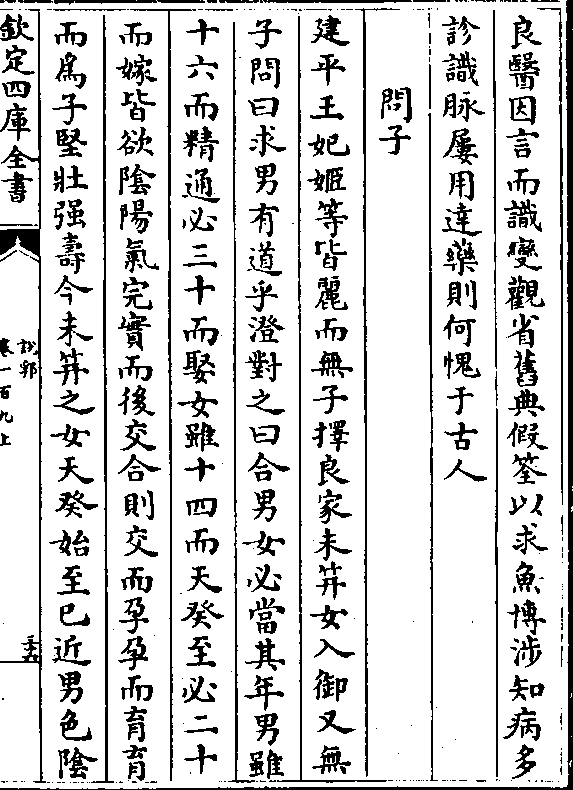 良醫因言而識變觀省舊典假筌以求魚博涉知病多
診識脉屢用達藥則何愧于古人
問子
建平王妃姬等皆麗而無子擇良家未笄女入御又無
子問曰求男有道乎澄對之曰合男女必當其年男雖
十六而精通必三十而娶女雖十四而天癸至必二十
而嫁皆欲陰陽氣完實而後交合則交而孕孕而育育
而為子堅壯强壽今未笄之女天癸始至已近男色陰
欽定四庫全書
說郛
卷一百九上